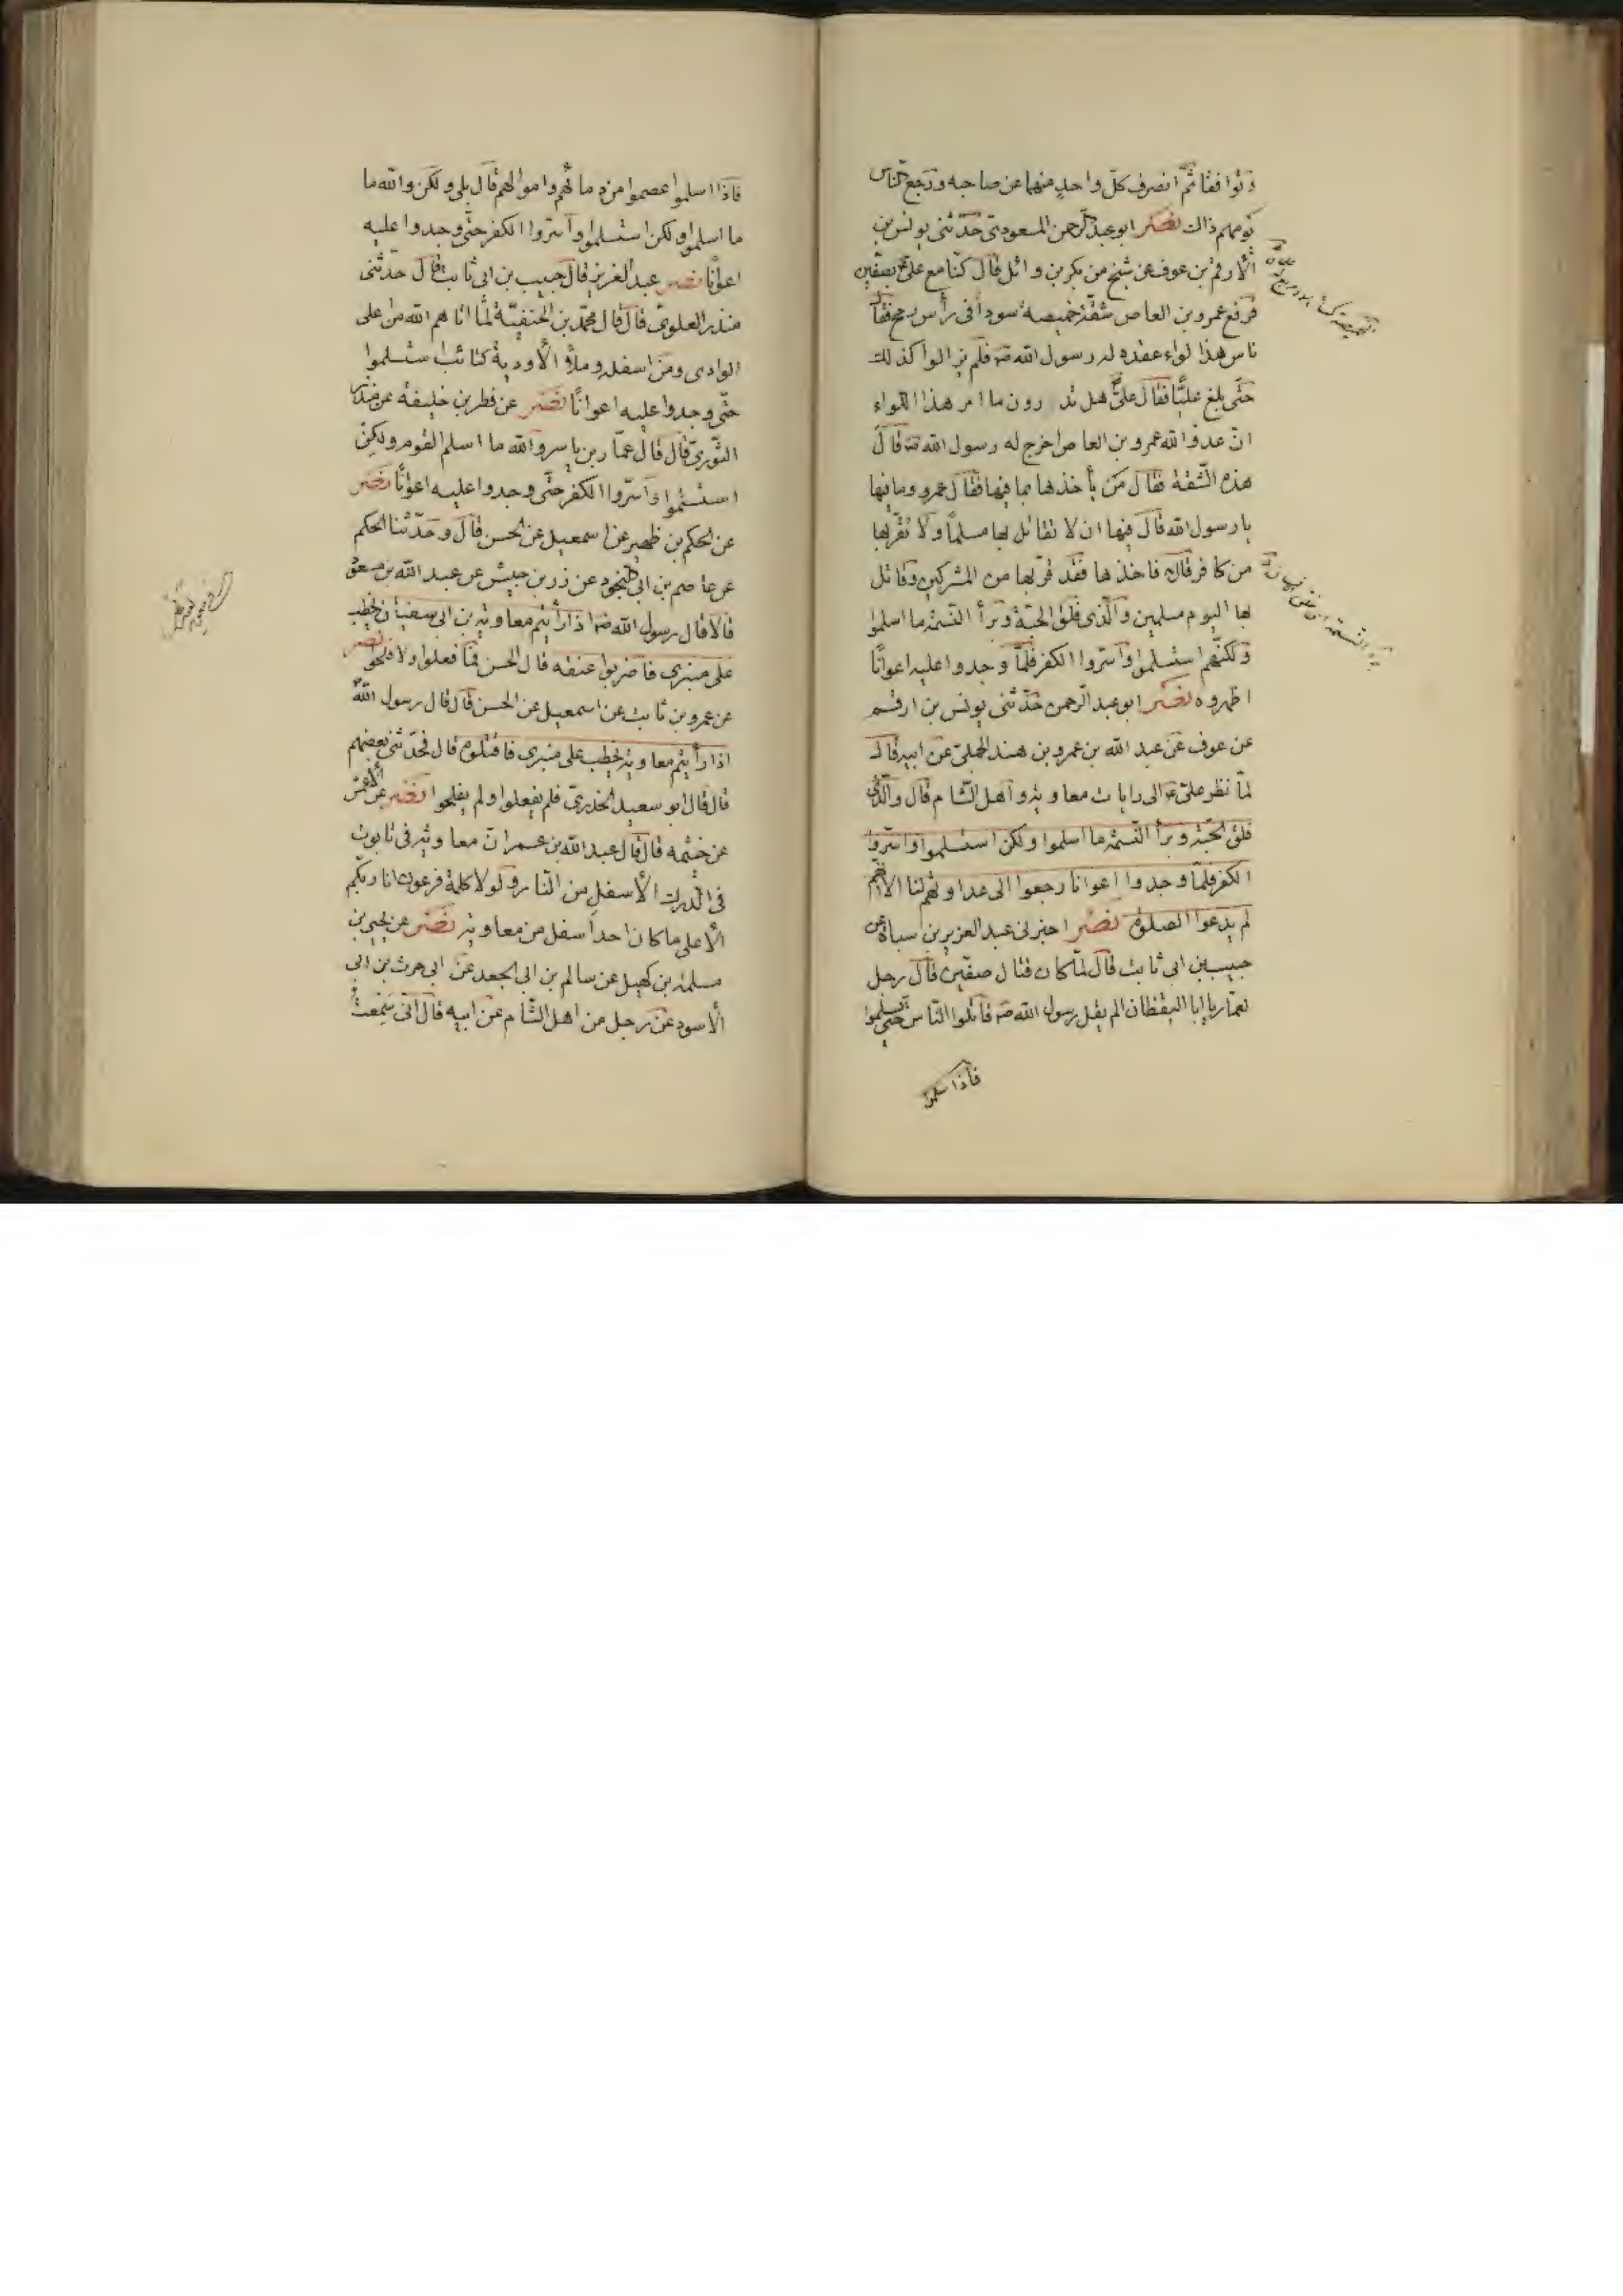 وتوافقا ثمّ انصرف كلّ واحد منهما عن صاحبه ورجع الناس
يومهم ذالك نصر ابو عبد الرحمن المسعودى حدّثنى يونس بن
الأرقم بن عوف عن شيخ من بكر بن وائل قال كنّا مع علىّ ع بصفّين
فرفع عمرو بن العاص شقّة خميصة سودا فى رأس رمح فقال
ناس هذا لواء عقده له رسول الله ص فلم يزالوا كذلك
حتّى بلغ عليّا فقال علىّ هل تدرون ما امر هذا اللواء
انّ عدوّ الله عمرو بن العاص اخرج له رسول الله ص قال
هذه الشّقة فقال من يأخذها بما فيها فقال عمرو وما فيها
يا رسول الله قال فيها ان لا تقاتل بها مسلماً ولا تقرّبها
من كافر قال فاخذها فقد قرّبها من المشركين وقاتل
بها اليوم مسلمين والّذى فلق الحبّة وبرأ النّسمة ما اسلموا
ولكنّهم استسلموا واسرّوا الكفر فلمّا وجدوا عليه اعوانًا
اظهروه نصر ابو عبد الرحمن حدّثنى يونس بن ارقم
عن عوف عن عبد الله بن عمرو بن هند الجملى عن ابيه قال
لمّا نظر علىّ ع الى رايات معاوية واهل الشّام قال والّذى
فلق الحبّة وبرأ النّسمة ما اسلموا ولكن استسلموا واسرّوا
الكفر فلمّا وجدوا اعوانا رجعوا الى عداوتهم لنا الا انّهم
لم يدعوا الصلوة نصر اخبرنى عبد العزيز بن سياه عن
حبيب بن ابى ثابت قال لمّا كان قتال صفّين قال رجل
لعمّار يا ابا اليقظان الم يقل رسول الله ص قاتلوا النّاس حتّى يسلموا
فاذا اسلموا
فاذا اسلموا عصموا منى دمائهم واموالهم قال بلى ولكن والله ما
ما اسلموا ولكن استسلموا واسرّوا الكفر حتّى وجدوا عليه
اعوانًا نصر عبد العزيز قال حبيب بن ابى ثابت قال حدّثنى
منذر العلوىّ قال قال محمّد بن الحنفيّة لمّا اتاهم الله من اعلى
الوادى ومن اسفله وملأ الأودية كتائب استسلموا
حتّى وجدوا عليه اعوانًا نصر عن فطر بن خليفة عن منذر
الثّورىّ قال قال عمّار بن ياسر والله ما اسلم القوم ولكن
استسلموا واسرّوا الكفر حتّى وجدوا عليه اعوانًا نصر
عن الحكم بن ظهير عن اسمعيل عن الحسن قال وحدّثنا الحكم
عن عاصم بن ابى النجود عن زر بن حبيش عن عبد الله بن مسعود
قالا قال رسول الله ص اذا رأيتم معاوية بن ابى سفيان يخطب
على منبرى فاضربوا عنقه قال الحسن فما فعلوا ولا افلحوا نصر
عن عمرو بن ثابت عن اسمعيل عن الحسن قال قال رسول الله
اذا رأيتم معاوية يخطب على منبرى فاقتلوه قال فحدّثنى بعضهم
قال قال ابو سعيد الخدرىّ فلم يفعلوا ولم يفلحوا نصر عن الأعمش
عن خثيمه قال قال عبد الله بن عمر ان معاوية فى تابوت
فى الدرك الأسفل من النّار ولولا كلمة فرعون انا ربّكم
الأعلى ما كان احد اسفل من معاوية نصر عن يحيى بن
مسلمة بن كهيل عن سالم بن ابى الجعد عن ابى حرث بن ابى
الأسود عن رجل من اهل الشّام عن ابيه قال انّى سمعت